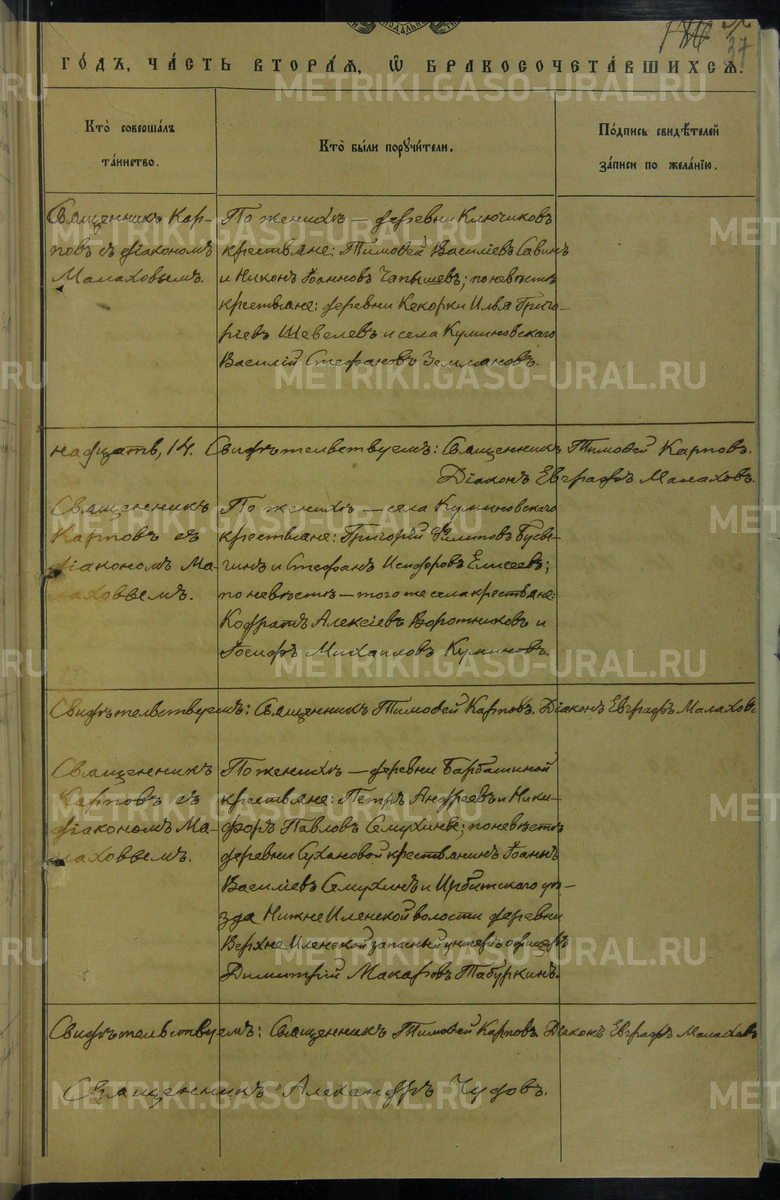 37
го́дъ, ча́сть втора́я, ѽ бракосочета́вшихся.
Кто̀ соверша́лъ
та́инство.
Кто̀ бы́ли порꙋчи́тели.
По́дпись свидѣ́телей
за́писи по жела́нїю.
Священникъ Кар-
повъ съ діакономъ
Малаховымъ.
По женихѣ — деревни Ключиковъ
крестьяне: Тимофей Василіевъ Савинъ
и Никонъ Іоанновъ Чапышевъ; по невѣстѣ
крестьяне: деревни Кекорки Илья Григо-
ріевъ Шевелевъ и села Куминовскаго
Василій Стефановъ Земляновъ.
надцать, 14. Свидѣтельствуемъ: Священникъ Тимофей Карповъ.
Діаконъ Евграфъ Малаховъ.
Священникъ
Карповъ съ
діакономъ Ма-
лаховымъ.
По женихѣ — села Куминовскаго
крестьяне: Григорій Филиповъ Бусы-
гинъ и Стефанъ Исидоровъ Елисеевъ;
по невѣстѣ — того же села крестьяне
Кодратъ Алексіевъ Воротниковъ и
Іосифъ Михаиловъ Куминовъ.
Свидѣтельствуемъ: Священникъ Тимофей Карповъ. Діаконъ Евграфъ Малаховъ
Священникъ
Карповъ съ
діакономъ Ма-
лаховымъ.
По женихѣ — деревни Барбашиной
крестьяне: Петръ Андреевъ и Ники-
форъ Павловъ Семухины; по невѣстѣ
деревни Сухановой крестьянинъ Іоаннъ
Василіевъ Семухинъ и Ирбитскаго уѣ-
зда Нижне Иленской волости деревни
Верхне Иленской запасный унтеръ офицеръ
Димитрій Макаровъ Табуркинъ.
Свидѣтельствуемъ: Священникъ Тимофей Карповъ. Діаконъ Евграфъ Малаховъ
Священникъ Александръ Чудовъ.
METRIKI.GASO-URAL.RU